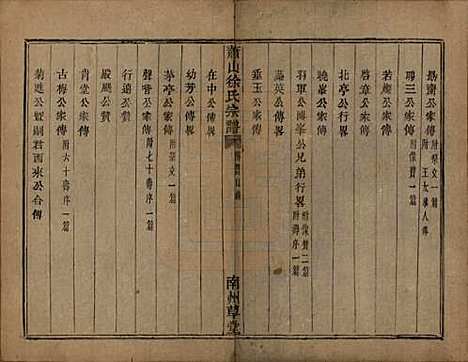 勗齋公家傳 附祭文一篇 附王太孺人傳
聘三公家傳 附像贊一篇
若崖公家傳
啓章公家傳
北亭公行畧
曉峯公行畧
羽軍公傳峯公兄弟行畧 附像贊二篇 附壽序一篇
蕴英公行畧
垂玉公家傳
蕭山徐氏宗譜
南州草堂
在中公家傳
幼芳公家傳
茅亭公行畧 附祭文一篇
聲音公家傳 附七十壽序一篇
殿颺公贊
行遠公贊
肯堂公家傳
古梅公家傳 附六十壽序一篇
菊遊公暨嗣君西來公合傳